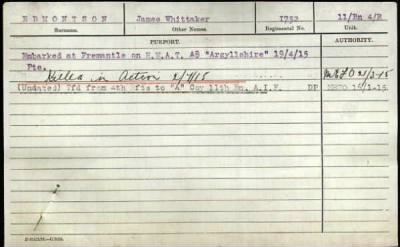 EDMONTSON James Whittaker 1752 11/Bn 4/R
Surname. Other Names. Regimental No. Unit.
PURPORT. AUTHORITY.
Embarked at Fremantle on H.M.A.T. A8 "Argyllshire" 19/4/15
Pte.
Killed in Action 2/ /15
(Undated) Tfd from 4th Rfts to "A" Coy 11th Bn. A.I.F. DP